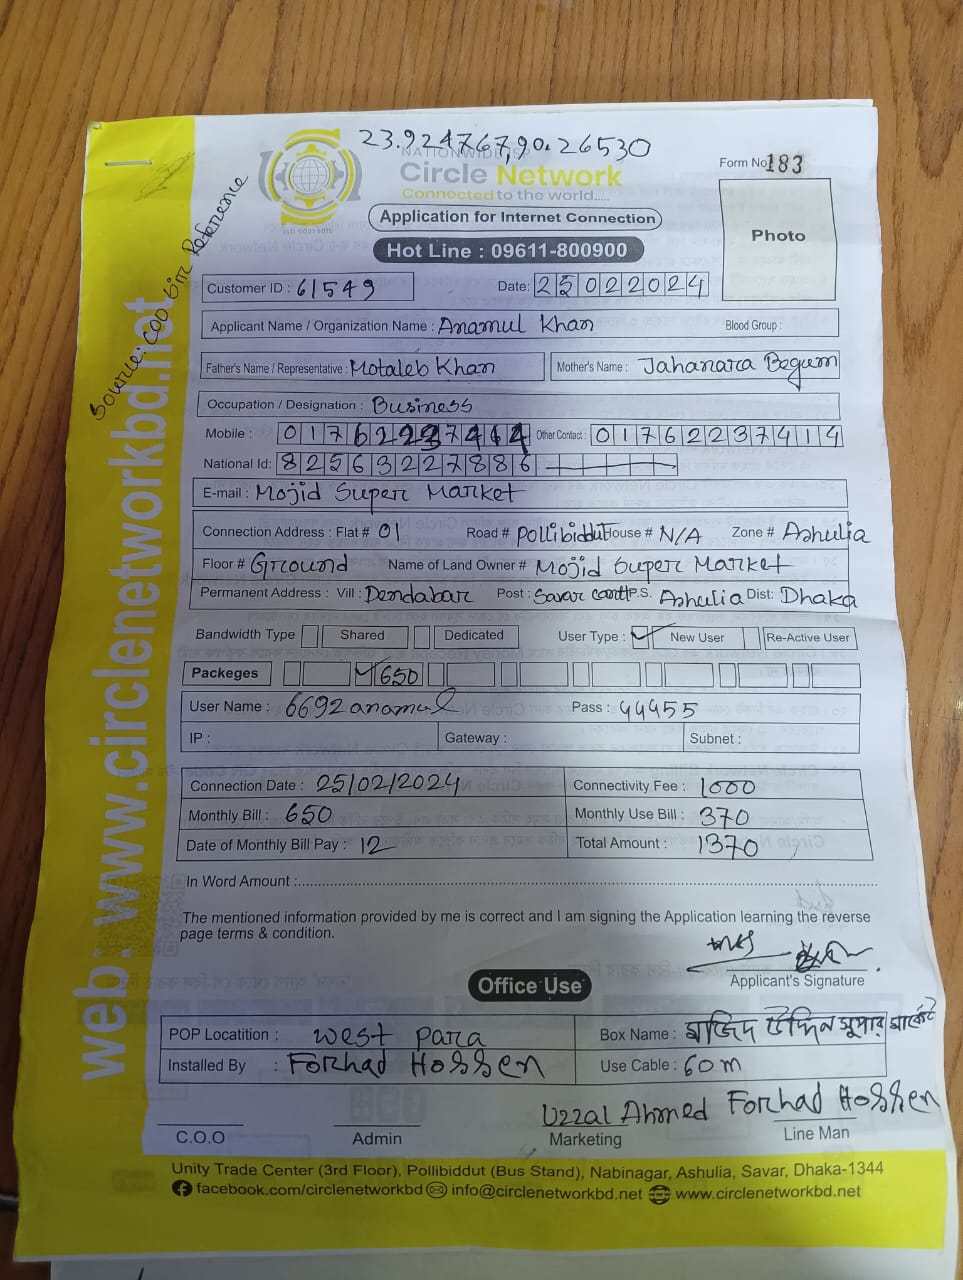 23.924767,90.26530
NATIONWIDE ISP
Circle Network
Connected to the world.....
ISO 9001:2015
Form No 183
Application for Internet Connection
Photo
Hot Line : 09611-800900
Source: COO স্যার Reference
web: www.circlenetworkbd.net
Customer ID : 61549 Date: 25022024
Applicant Name / Organization Name : Anamul Khan Blood Group :
Father's Name / Representative : Motaleb Khan Mother's Name : Jahanara Begum
Occupation / Designation : Business
Mobile : 01762237414 Other Contact : 01762237414
National Id: 8256322786
E-mail : Mojid Super Market
Connection Address : Flat # 01 Road # Pollibiddut House # N/A Zone # Ashulia
Floor # Ground Name of Land Owner # Mojid Super Market
Permanent Address : Vill : Dendabar Post : Savar cantt P.S. Ashulia Dist: Dhaka
Bandwidth Type Shared Dedicated User Type : ✓ New User Re-Active User
Packeges ✓ 650
User Name : 6692anamul Pass : 44455
IP : Gateway : Subnet :
Connection Date : 25/02/2024 Connectivity Fee : 1000
Monthly Bill : 650 Monthly Use Bill : 370
Date of Monthly Bill Pay : 12 Total Amount : 1370
In Word Amount :
The mentioned information provided by me is correct and I am signing the Application learning the reverse
page terms & condition.
Applicant's Signature
Office Use
POP Locatition : West para Box Name : মজিদ উদ্দিন সুপার মার্কেট
Installed By : Forhad Hossen Use Cable : 60m
Uzzal Ahmed Forhad Hossen
C.O.O Admin Marketing Line Man
Unity Trade Center (3rd Floor), Pollibiddut (Bus Stand), Nabinagar, Ashulia, Savar, Dhaka-1344
facebook.com/circlenetworkbd info@circlenetworkbd.net www.circlenetworkbd.net